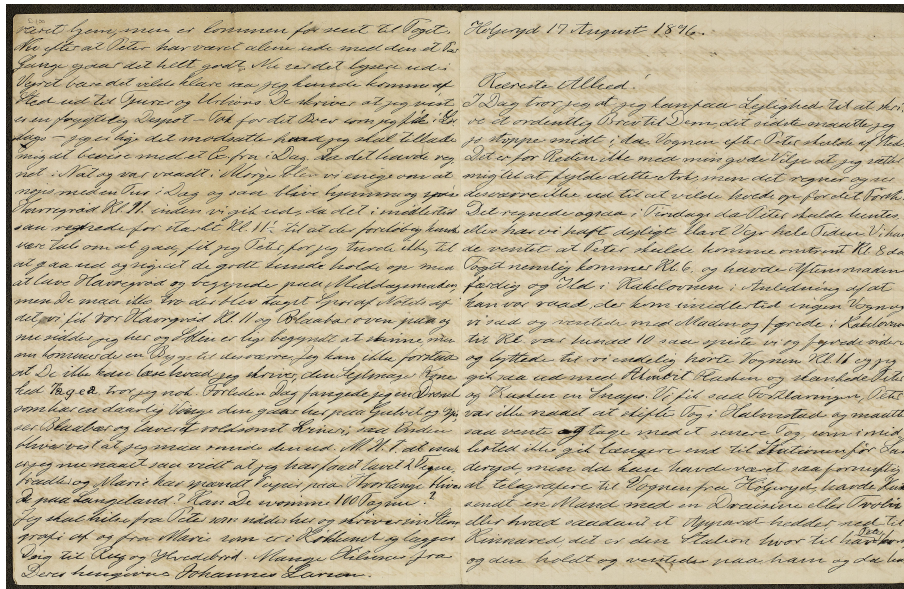 været hjem, men er kommen for sent til Toget.
Nu efter at Peter har været alene ude med den et Par
Gange gaar det helt godt. Nu var det lysere ud i
Vejret bare det vilde klare saa jeg kunde komme af
Sted ud til Tjurer og Urhøns. De skriver at jeg vist
er en frygtelig Despot – Tak for det Brev som jeg fik i Gaar
– jeg er lige det modsatte hvad jeg skal tillade
mig at bevise med et Ex. fra i Dag. Da det havde reg-
net i Nat og var vaadt i Morges blev vi enige om at
nøjes med en Tur i Dag og saa blive hjemme og spise
Havregrød Kl. 11 inden vi gik ud, da det imidlertid
saa regnede for stærkt Kl. 11
være Tale om at gaa, fik jeg Peter, for jeg turde ikke, til
at gaa ud og sige at de godt kunde holde op med
at lave Havregrød og begynde paa Middagsmaden
men De maa ikke tro der blev taget Spor af Notits af
det, vi fik vor Havregrød Kl. 11 og Blaabær oven paa og
nu sidder jeg her og Solen er lige begyndt at skinne, men
nu kommer de en Byge til desværre. Jeg kan ikke forstaa
at De ikke kan læse hvad jeg skriver, den
hed Tegea tror jeg nok. Forleden Dag fangede jeg en Drossel
som har en daarlig Vinge den gaar her paa Gulvet og spi-
ser Blaabær og
blive vist at jeg maa smide den ud. M. H. t. at
er jeg nu naaet saa vidt at jeg har faaet lavet 2 Tegne-
brædter og Marie har spændt Papir paa. Hvorlænge bliver
De paa Langeland? Kan De svømme 100 Favne?
Jeg skal hilse fra Peter som sidder her og skriver sin Steno-
grafi af og fra Marie som er i Køkkenet og lægger
Dejg til Rug og Hvedebrød. Mange Hilsener fra
Deres hengivne Johannes Larsen.
Höljeryd 17 August 1896.
Kæreste Alhed!
I Dag tror jeg at jeg kan faa Lejlighed til at skri-
ve et ordentlig Brev til Dem, det sidste maatte jeg
jo stoppe midt i, da Vognen efter Peter skulde af Sted.
Det er for Resten ikke med min gode Vilje at jeg sætter
mig til at fylde dette Ark, men det regner og ser
desværre ikke ud til at vilde holde op for det Første.
Det regnede ogsaa i Tirsdags da Peter skulde hentes
ellers har vi haft dejligt klart Vejr hele Tiden. Vi hav-
de ventet at Peter skulde komme omtrent Kl. 8 da
Toget nemlig kommer Kl. 6, og havde Aftensmaden
færdig og Ild i Kakkelovnen i Anledning af at
han var vaad, der kom imidlertid ingen Vogn
vi sad og ventede med Maden og fyrede i Kakkelovnen
til Kl. var lunsd 10 saa spiste vi og fyrede videre
og lyttede til vi endelig hørte Vognen Kl. 11 og jeg
gik saa ud med Akvavit Flasken og skænkede Peter
og Kusken en Snaps. Vi fik saa Forklaringen, Peter
var ikke naaet at skifte Tog i Halmstad og maatte
saa vente og tage med et senere Tog som imid-
lertid ikke gik længere end til Stationen før Lan-
deryd men da han havde været saa fornuftig
at telegrafere til Vognen fra Höljeryd, havde
sendt en Mand med en Draisine eller Trolle
eller hvad saadant et Apparat hedder ned til
Kinnared det er den Station hvor til Peter kom
og den holdt og ventede paa ham og da han